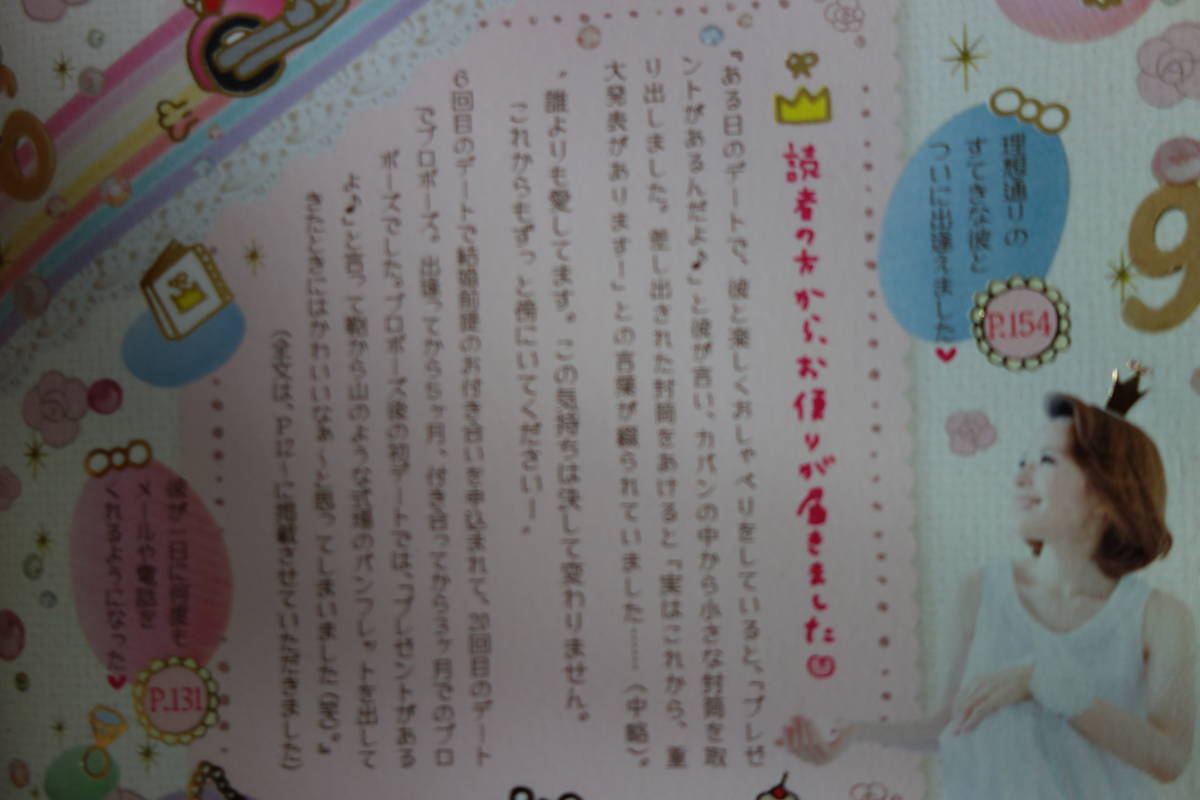 理想通りの
すてきな彼と
ついに出逢えました♥
P.154
読者の方から、お便りが届きました
『ある日のデートで、彼と楽しくおしゃべりをしていると、「プレゼ
ントがあるんだよ♪」と彼が言い、カバンの中から小さな封筒を取
り出しました。差し出された封筒をあけると「実はこれから、重
大発表があります…」との言葉が綴られていました……（中略）。
“誰よりも愛してます。この気持ちは決して変わりません。
これからもずっと傍にいてください…。”
6回目のデートで結婚前提のお付き合いを申込まれて、20回目のデート
でプロポーズ。出逢ってから5ヶ月、付き合ってから3ヶ月でのプロ
ポーズでした。プロポーズ後の初デートでは、「プレゼントがある
よ♪」と言って鞄から山のような式場のパンフレットを出して
きたときにはかわいいなぁ〜と思ってしまいました（笑）。』
（全文は、P.に掲載させていただきました）
彼が一日に何度も
メールや電話を
くれるようになった♥
P.131
9